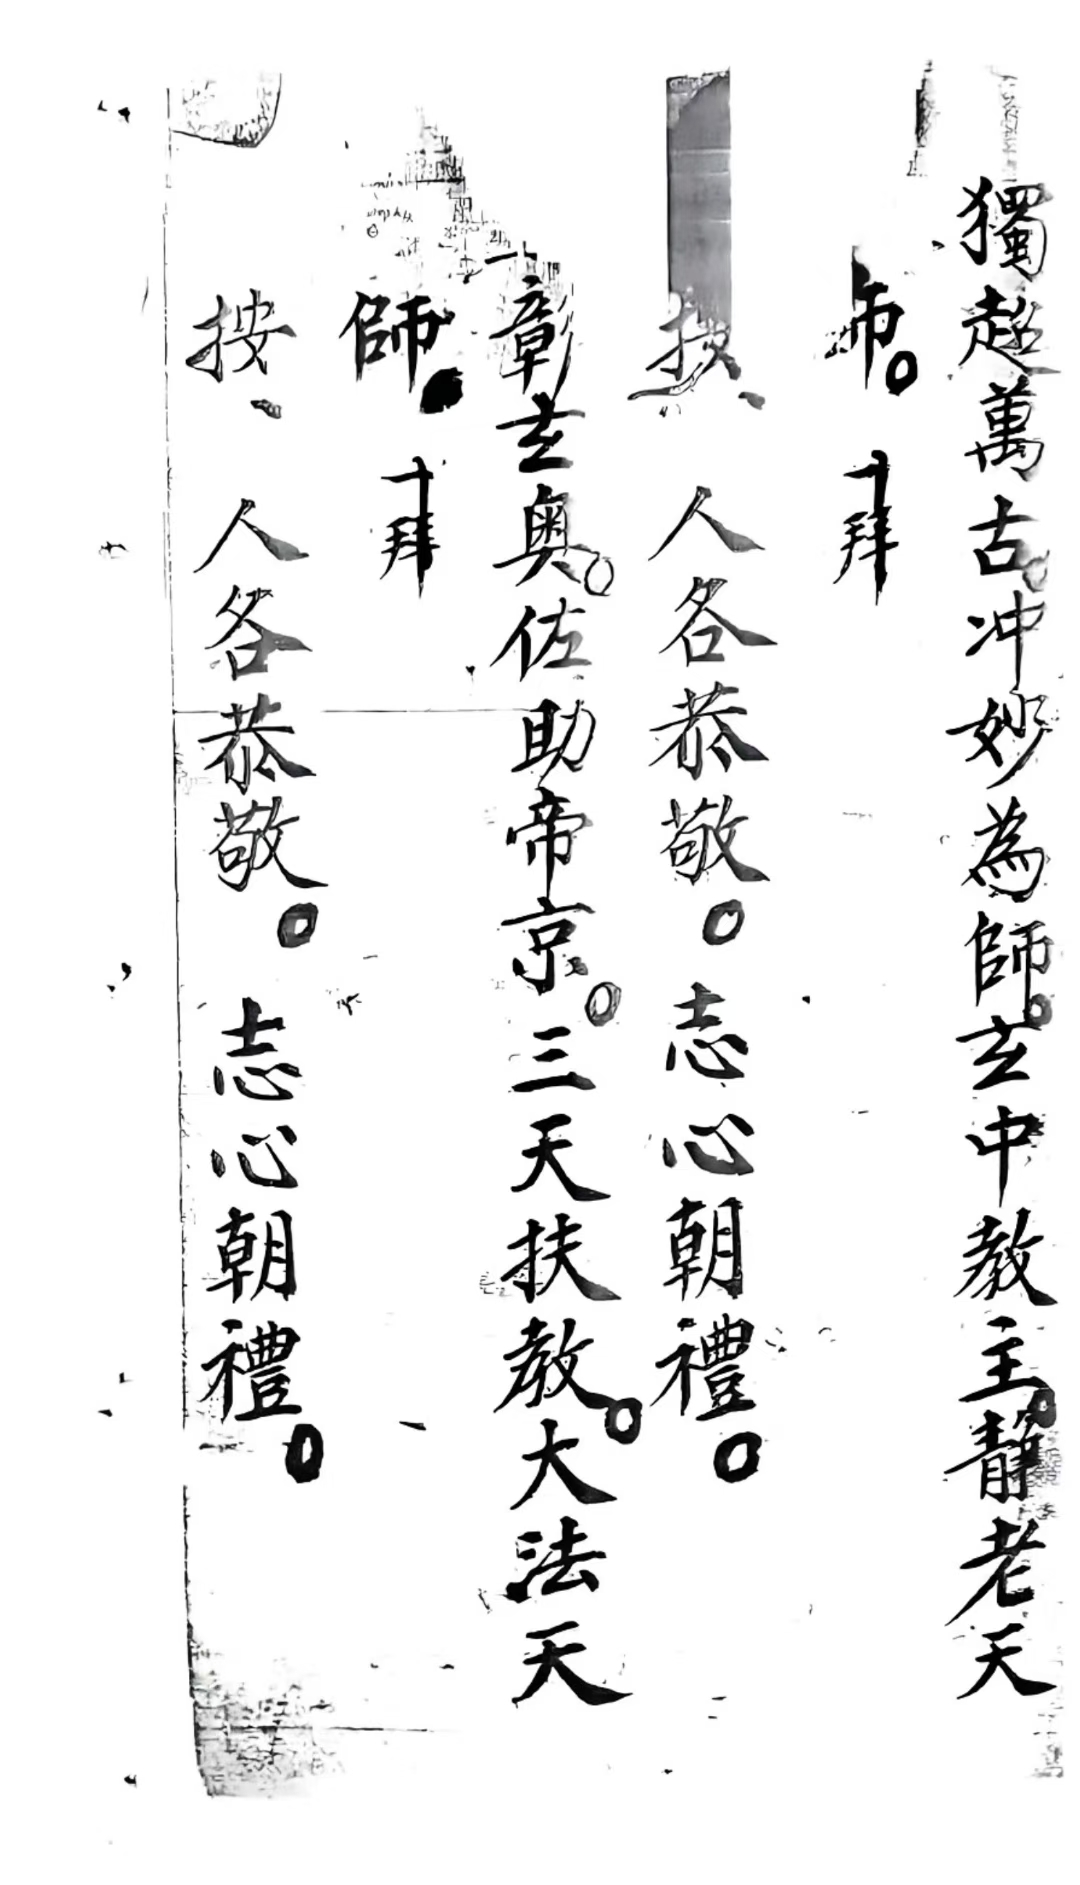 獨超萬古。冲妙為師。玄中教主。靜老天
師。十拜
按、人各恭敬。志心朝禮。
彰玄奥。佐助帝京。三天扶教。大法天
師。十拜
按、人各恭敬。志心朝禮。